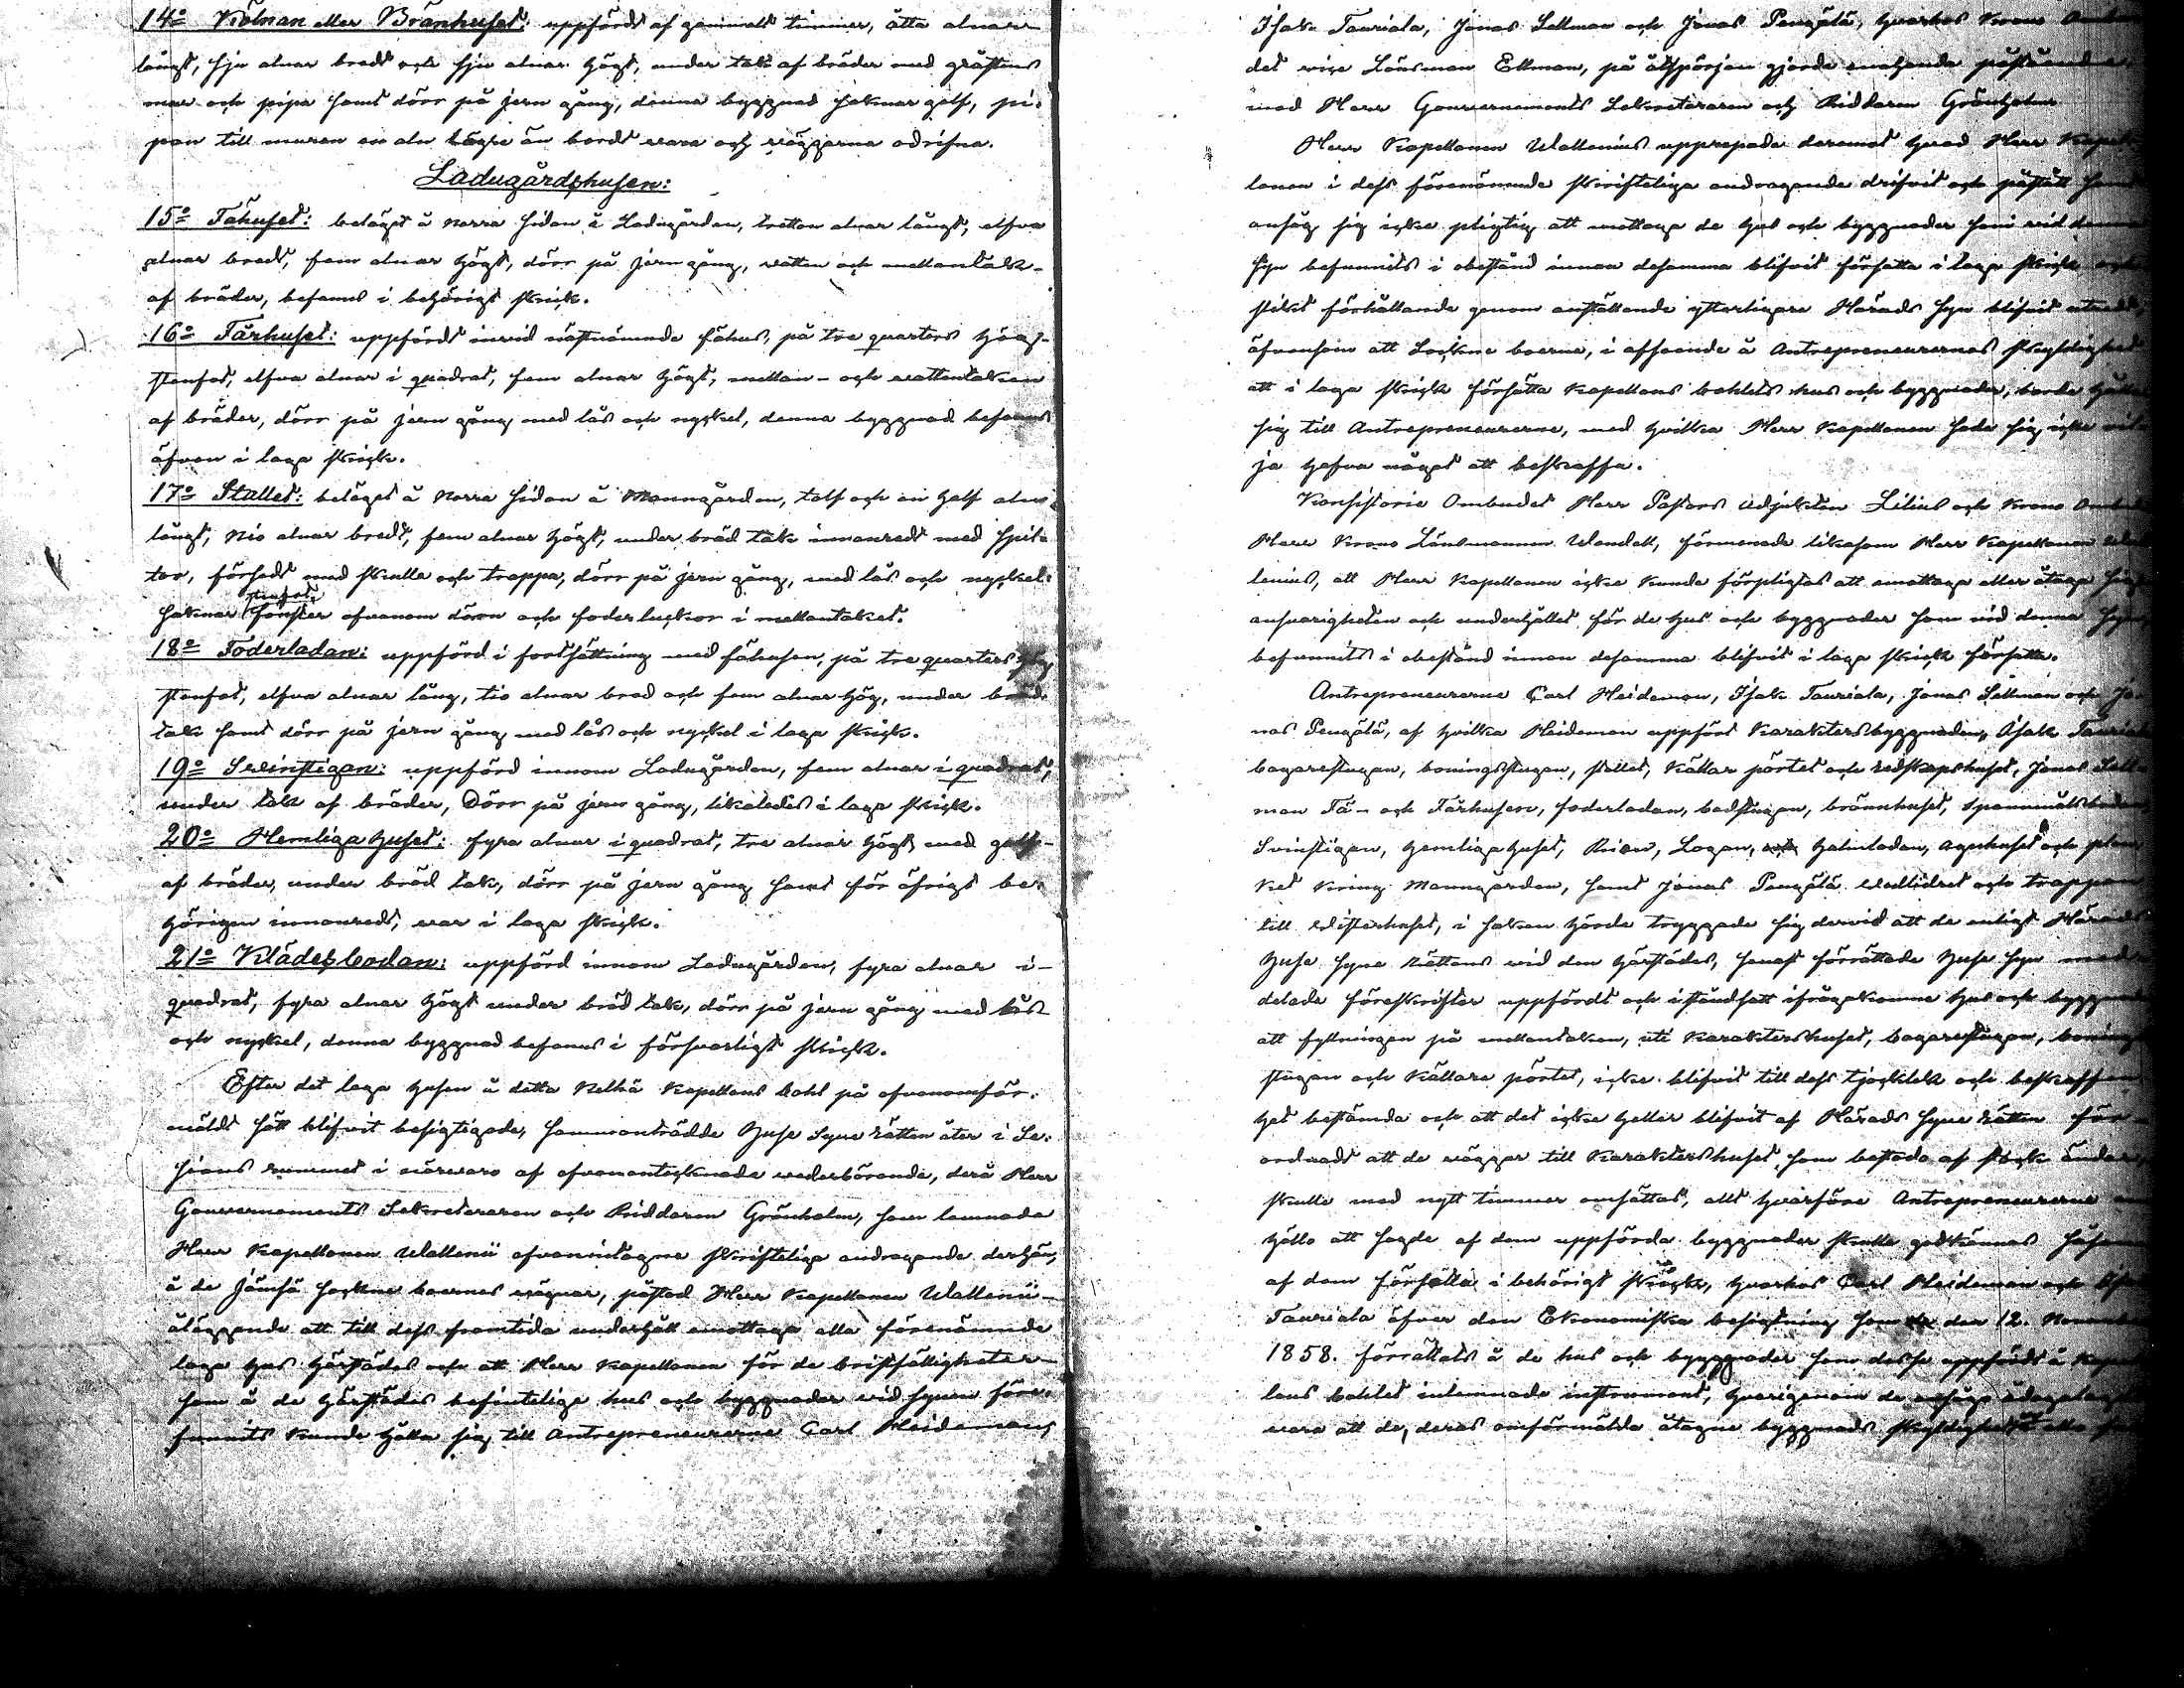 14o Kölnan eller Bränhuset: uppfördt af gammalt timmer, åtta alnar
långt, sju alnar bredt och sju alnar högt, under tak af bräder med gråstens
mur och pipa samt dörr på jern gång, denna byggnad saknar golf, pi-
pan till muren en aln lägre än bordt vara och väggarna odrifna.
Ladugårdshusen:
15o Fähuset: beläget å norra sidan å Ladugården, tretton alnar långt, elfva
alnar bredt, fem alnar högt, dörr på jern gång, vatten och mellantak
af bräder, befanns i behörigt skick.
16o Fårhuset: uppfördt invid nästnämnde fähus, på tre quarters hög
stenfot, elfva alnar i quadrat, fem alnar högt, mellan- och vattentaken
af bräder, dörr på jern gång med lås och nyckel, denna byggnad befanns
äfven i laga skick.
17o Stallet: beläget å norra sidan å Manngården, tolf och en half aln
långt, nio alnar bredt, fem alnar högt, under bräd tak innanredt med spil-
tor, försedt med skulle och trappa, dörr på jern gång, med lås och nyckel:
saknar fönster ofvanom dörrn och foderluckor i mellantaket.
18o Foderladan: uppförd i fortsättning med fähusen, på tre quarters hög
stenfot, elfva alnar lång, tio alnar bred och fem alnar hög, under bräd-
tak samt dörr på jern gång med lås och nyckel i laga skick.
19o Sveinstigan: uppförd innom Ladugården, fem alnar i quadrat,
under tak af bräder, Dörr på jern gång, likaledes i laga skick.
20o Hemligahuset: fyra alnar i quadrat, tre alnar högt med golf
af bräder, under bräd tak, dörr på jern gång samt för öfrigt be-
hörigen innanredt, var i laga skick.
21o Klädesbodan: uppförd innom Ladugården, fyra alnar i
quadrat, fyra alnar högt under bräd tak, dörr på jern gång med lås
och nyckel, denna byggnad befanns i försvarligt skick.
Efter det laga husen å detta Kapellans bohl på ofvanomför-
mäldt sätt blifvit besigtigade, sammanträdde Huse Syne rätten åter i Se-
sions rummet i närvaro af ofvanantecknade vederbörande, derå Herr
Gouvernements Sekreteraren och Riddaren Grönholm, som lemnade
Herr Kapellanen Wallenii ofvanintagne skrifteliga andragande derhän,
å de Jämsä sockne boernes vägnar, påstod Herr Kapellanen Wallenii
åläggande att till dess framtida underhåll emottaga alla förenämnde
laga hus härstädes och att Herr Kapellanen för de bristfälligheter
som å de härstädes befinteliga hus och byggnader vid synen före-
funnits kunde hålla sig till Antrepreneurerne Carl Heideman,
Isak Tauriala, Jonas Sellman och Jonas Pengälä, hvarhos Krono
det vice Länsman Ekman, på åtspörjan gjorde enahanda påstående
med Herr Gouvernements Sekreteraren och Riddaren Grönholm
Herr Kapellanen Wallenius upprepade deremot hvad Herr Kapel-
lanen i dess förenämnde skrifteliga andragande drifvit och påstått samt
ansåg sig icke pligtig att mottaga de hus och byggnader som vid denna
syn befunnits i obestånd innan desamma blifvit försatta i laga skick och
slikt förhållande genom anställande ytterligare Härads syn blifvit utredt,
äfvensom att Sockne boerne, i afseende å Antrepreneurernes skyldighet
att i laga skick försätta Kapellans bohlets hus och byggnader, borde hålla
sig till Antrepreneurerne, med hvilka Herr Kapellanen sade sig icke vil-
ja hafva något att beskaffa.
Konsistorie Ombudet Herr Pastors Adjunkten Lilius och Krono
Herr Krono Länsmannen Wendell, förmenade likasom Herr Kapellanen
lenius, att Herr Kapellanen icke kunde förpligtas att emottaga eller åtaga sig
ansvarigheten och underhållet för de hus och byggnader som vid denna syn
befunnits i obestånd innan desamma blifvit i laga skick försatta.
Antrepreneurerne Carl Heideman, Isak Tauriala, Jonas Sellman och Jo-
nas Pengälä, af hvilka Heideman uppfört Karaktersbyggnaden, Isak Tauriala
bagarestugan, boningsstugan, stallet, källar pörtet och redskapshuset, Jonas Sell-
man Fä- och Fårhusen, foderladan, badstugan, brännhuset, spannmålsboden
Svinstigan, hemligahuset, Rian, Logan, halmladan, agnhuset och plan-
ket kring Manngården, samt Jonas Pengälä Vedlidret och trappan
till Visterhuset, i saken hörde tryggade sig dervid att de enligt Härads
Huse Syne Rättens vid den härstädes, senast förrättade Huse Syn med-
delade föreskrifter uppfördt och iståndsatt ifrågakomne hus och byggnader
att fyllningen på mellantaken, uti Karaktershuset, bagarestugan, bonings
stugan och Källare pörtet, icke blifvit till dess tjocklek och beskaffen-
het bestämda och att det icke heller blifvit af Härads Syne rätten för-
ordnadt att de väggar till Karaktershuset, som bestodo af stock ändar,
skulle med nytt timmer omsättas, allt hvarföre Antrepreneurerne an-
höllo att sagde af dem uppförda byggnader skulle godkännas såsom
af dem försatte i behörigt skick, hvarhos Carl Heideman och Isak
Tauriala öfver den Ekonomiska besigtning som den 12. November
1858. förrättats å de hus och byggnader som desse uppfördt å Kapel-
lans bohlet inlemnade instrument, hvarigenom de
vara att de, deras omförmälda åtagne byggnads skyldighet